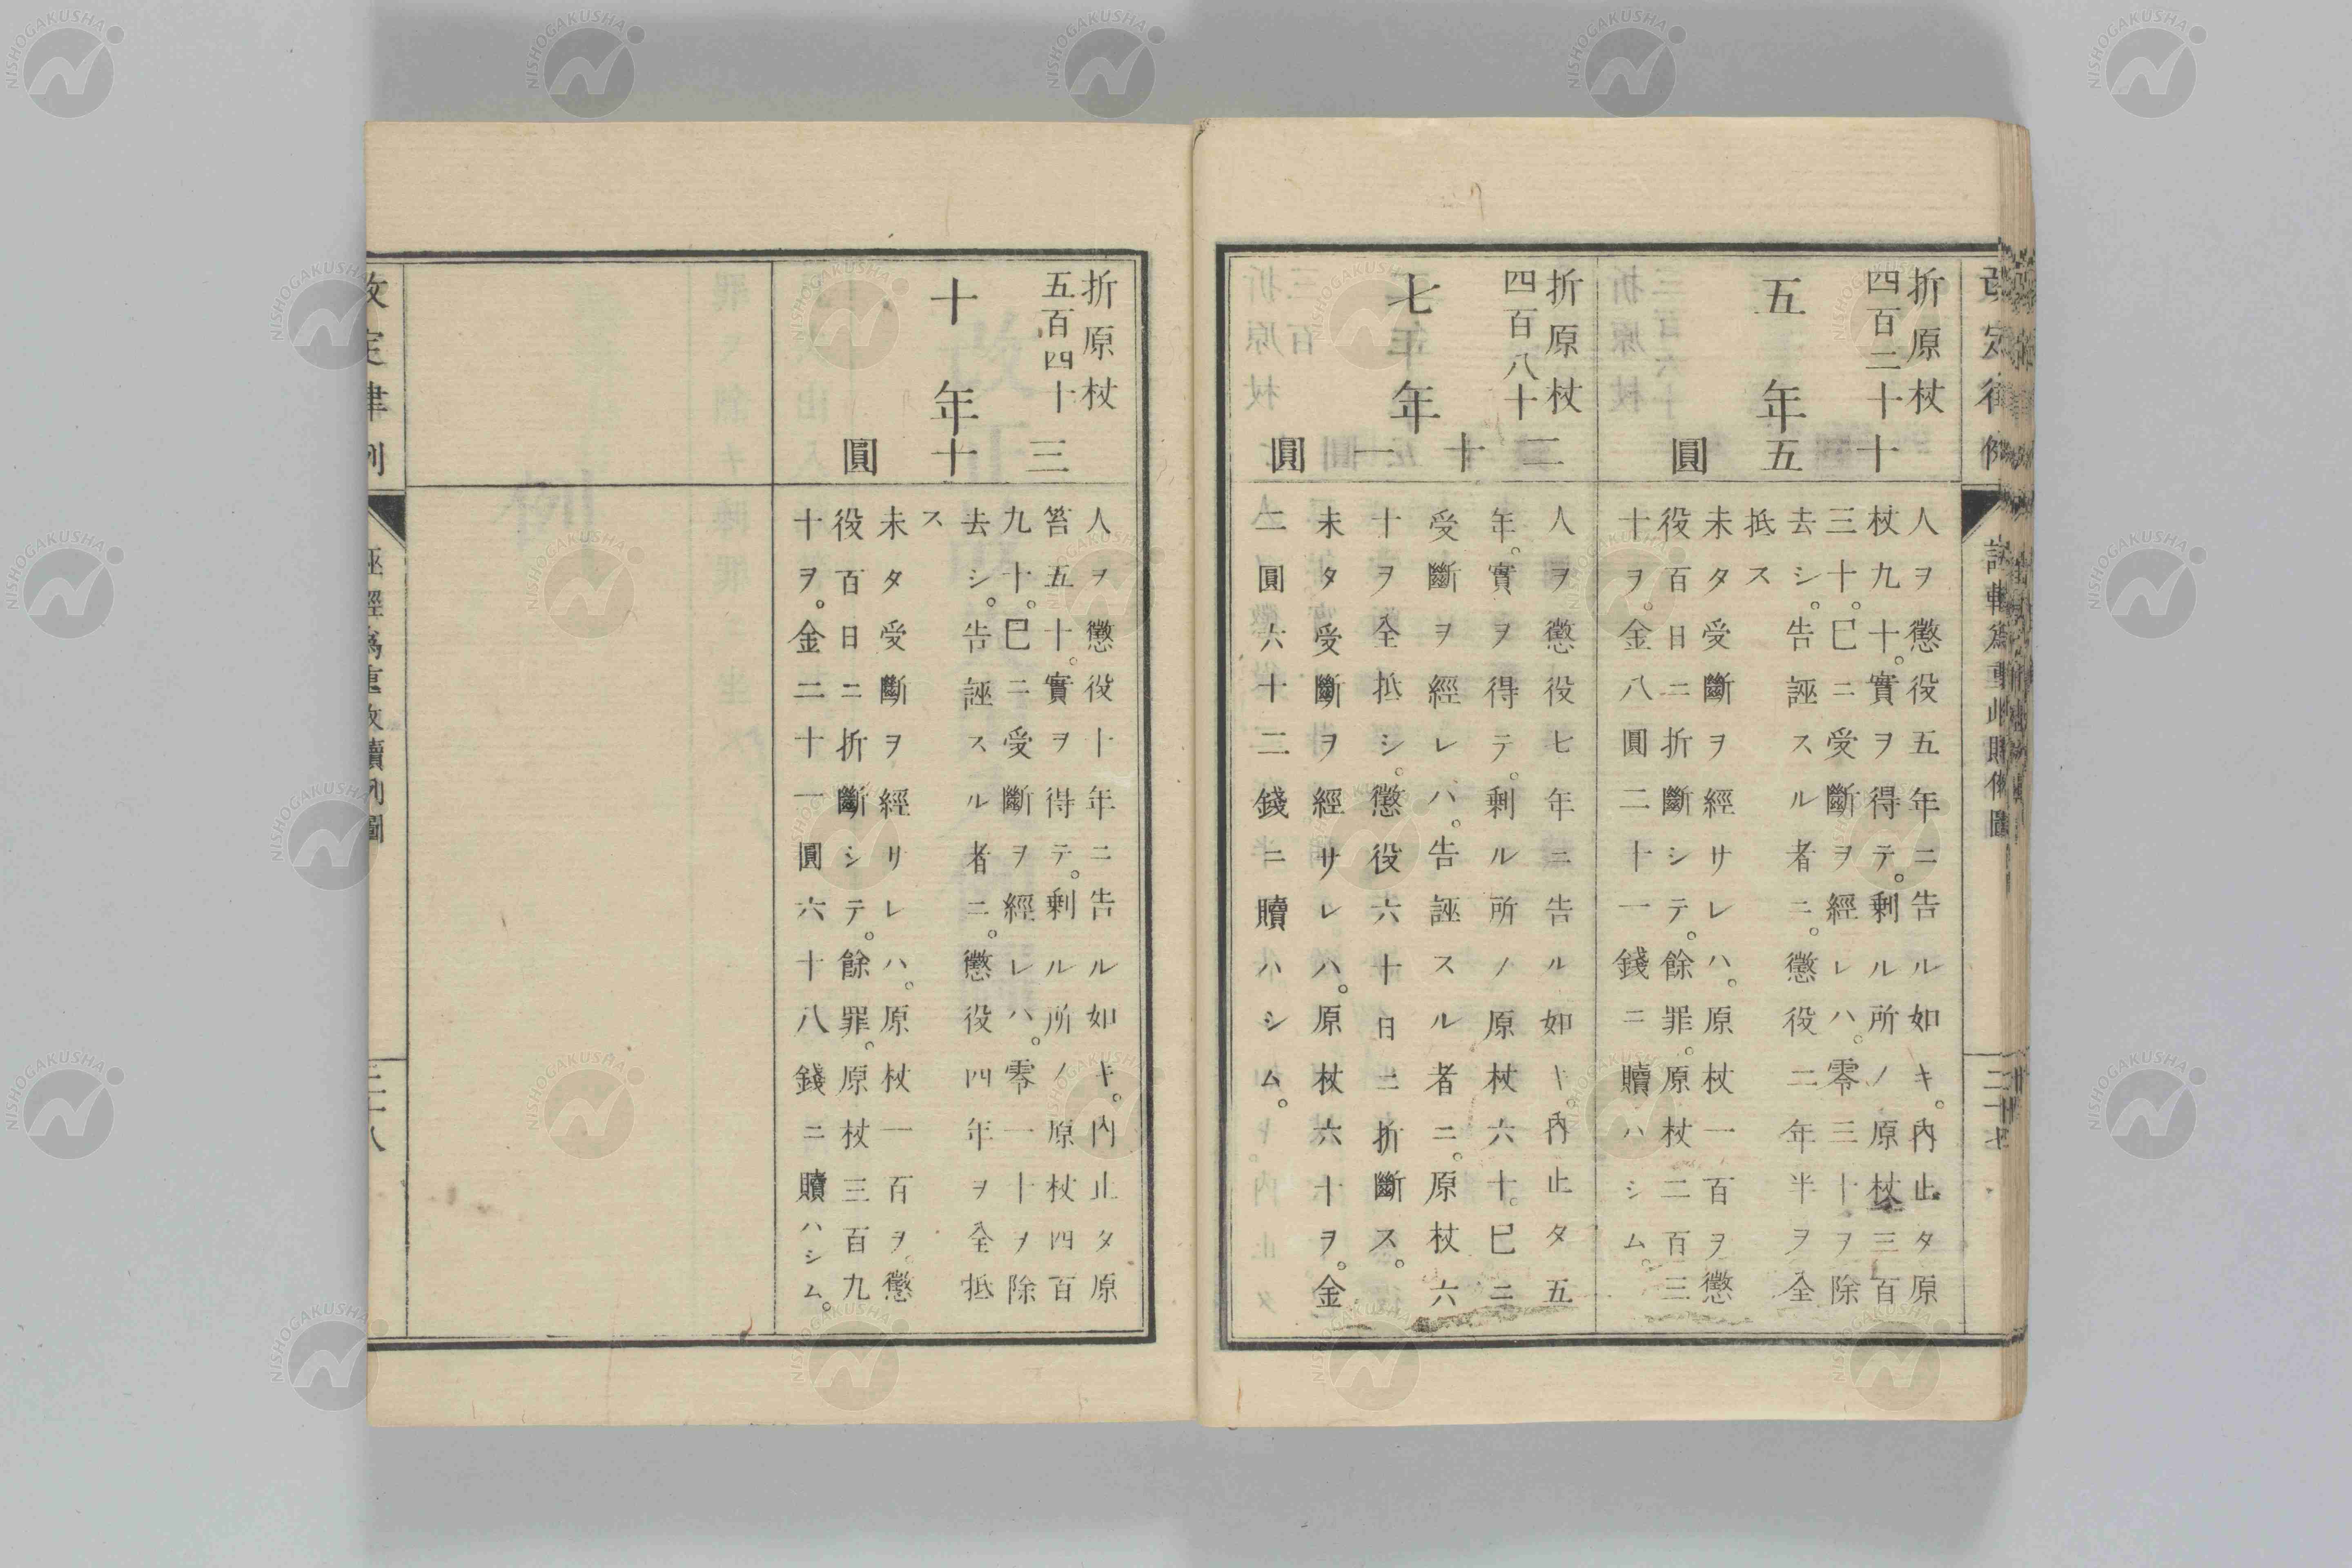 折原杖
四百二十
五年
十五圓
人ヲ懲役五年ニ告ル如キ。內止タ原
杖九十。實ヲ得テ。剩ル所ノ原杖三百
三十。巳ニ受斷ヲ經レハ。零三十ヲ除
去シ。告誣スル者ニ。懲役二年半ヲ全
抵ス
未タ受斷ヲ經サレハ。原杖一百ヲ懲
役百日ニ折斷シテ。餘罪。原杖二百三
十ヲ。金八圓二十一錢ニ贖ハシム。
折原杖
四百八十
七年
二十一圓
人ヲ懲役七年ニ告ル如キ。內止タ五
年。實ヲ得テ。剩ル所ノ原杖六十。巳ニ
受斷ヲ經レハ。告誣スル者ニ。原杖六
十ヲ全抵シ。懲役六十日ニ折斷ス。
未タ受斷ヲ經サレハ。原杖六十ヲ。金
二圓六十二錢ニ贖ハシム。
折原杖
五百四十
十年
三十圓
人ヲ懲役十年ニ告ル如キ。內止タ原
笞五十。實ヲ得テ。剩ル所ノ原杖四百
九十。巳ニ受斷ヲ經レハ。零一十ヲ除
去シ。告誣スル者ニ。懲役四年ヲ全抵
ス
未タ受斷ヲ經サレハ。原杖一百ヲ。懲
役百日ニ折斷シテ。餘罪。原杖三百九
十ヲ。金二十一圓六十八錢ニ贖ハシム。
改定律例
誣輕爲重收贖例圖
二十八
NISHOGAKUSHA